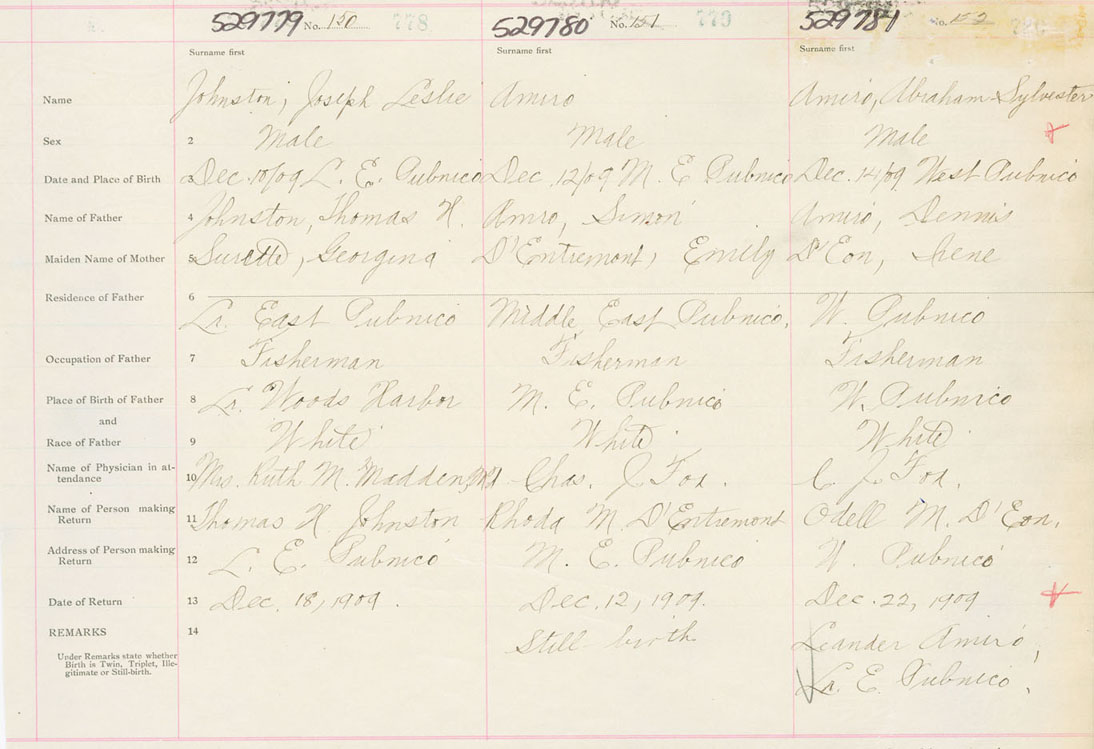 529779 No. 150 778 529780 No. 151 779 529781 No. 152
Surname first Surname first Surname first
Name Johnston, Joseph Leslie Amiro Amiro, Abraham Sylvester
Sex 2 Male Male Male
Date and Place of Birth 3 Dec. 10/09 L. E. Pubnico Dec. 12/09 M. E Pubnico Dec. 14/09 West Pubnico
Name of Father 4 Johnston, Thomas H. Amiro, Simon Amiro, Dennis
Maiden Name of Mother 5 Surette, Georgina D'Entremont, Emily D'Eon, Irene
Residence of Father 6
Lr. East Pubnico Middle East Pubnico. W. Pubnico
Occupation of Father 7 Fisherman Fisherman Fisherman
Place of Birth of Father 8 Lr. Woods Harbor M. E. Pubnico W. Pubnico
and
Race of Father 9 White White White
Name of Physician in at-
tendance 10 Mrs. Ruth M. Madden, Chas. J Fox. C J Fox.
Name of Person making
Return 11 Thomas H Johnston Rhoda M D'Entremont Odell M. D'Eon.
Address of Person making
Return 12 L. E. Pubnico M. E. Pubnico W. Pubnico
Date of Return 13 Dec. 18, 1909. Dec. 12, 1909. Dec. 22, 1909
REMARKS 14 Still birth Leander Amiro,
Under Remarks state whether
Birth is Twin, Triplet, Ille-
gitimate or Still-birth.
Lr. E. Pubnico.